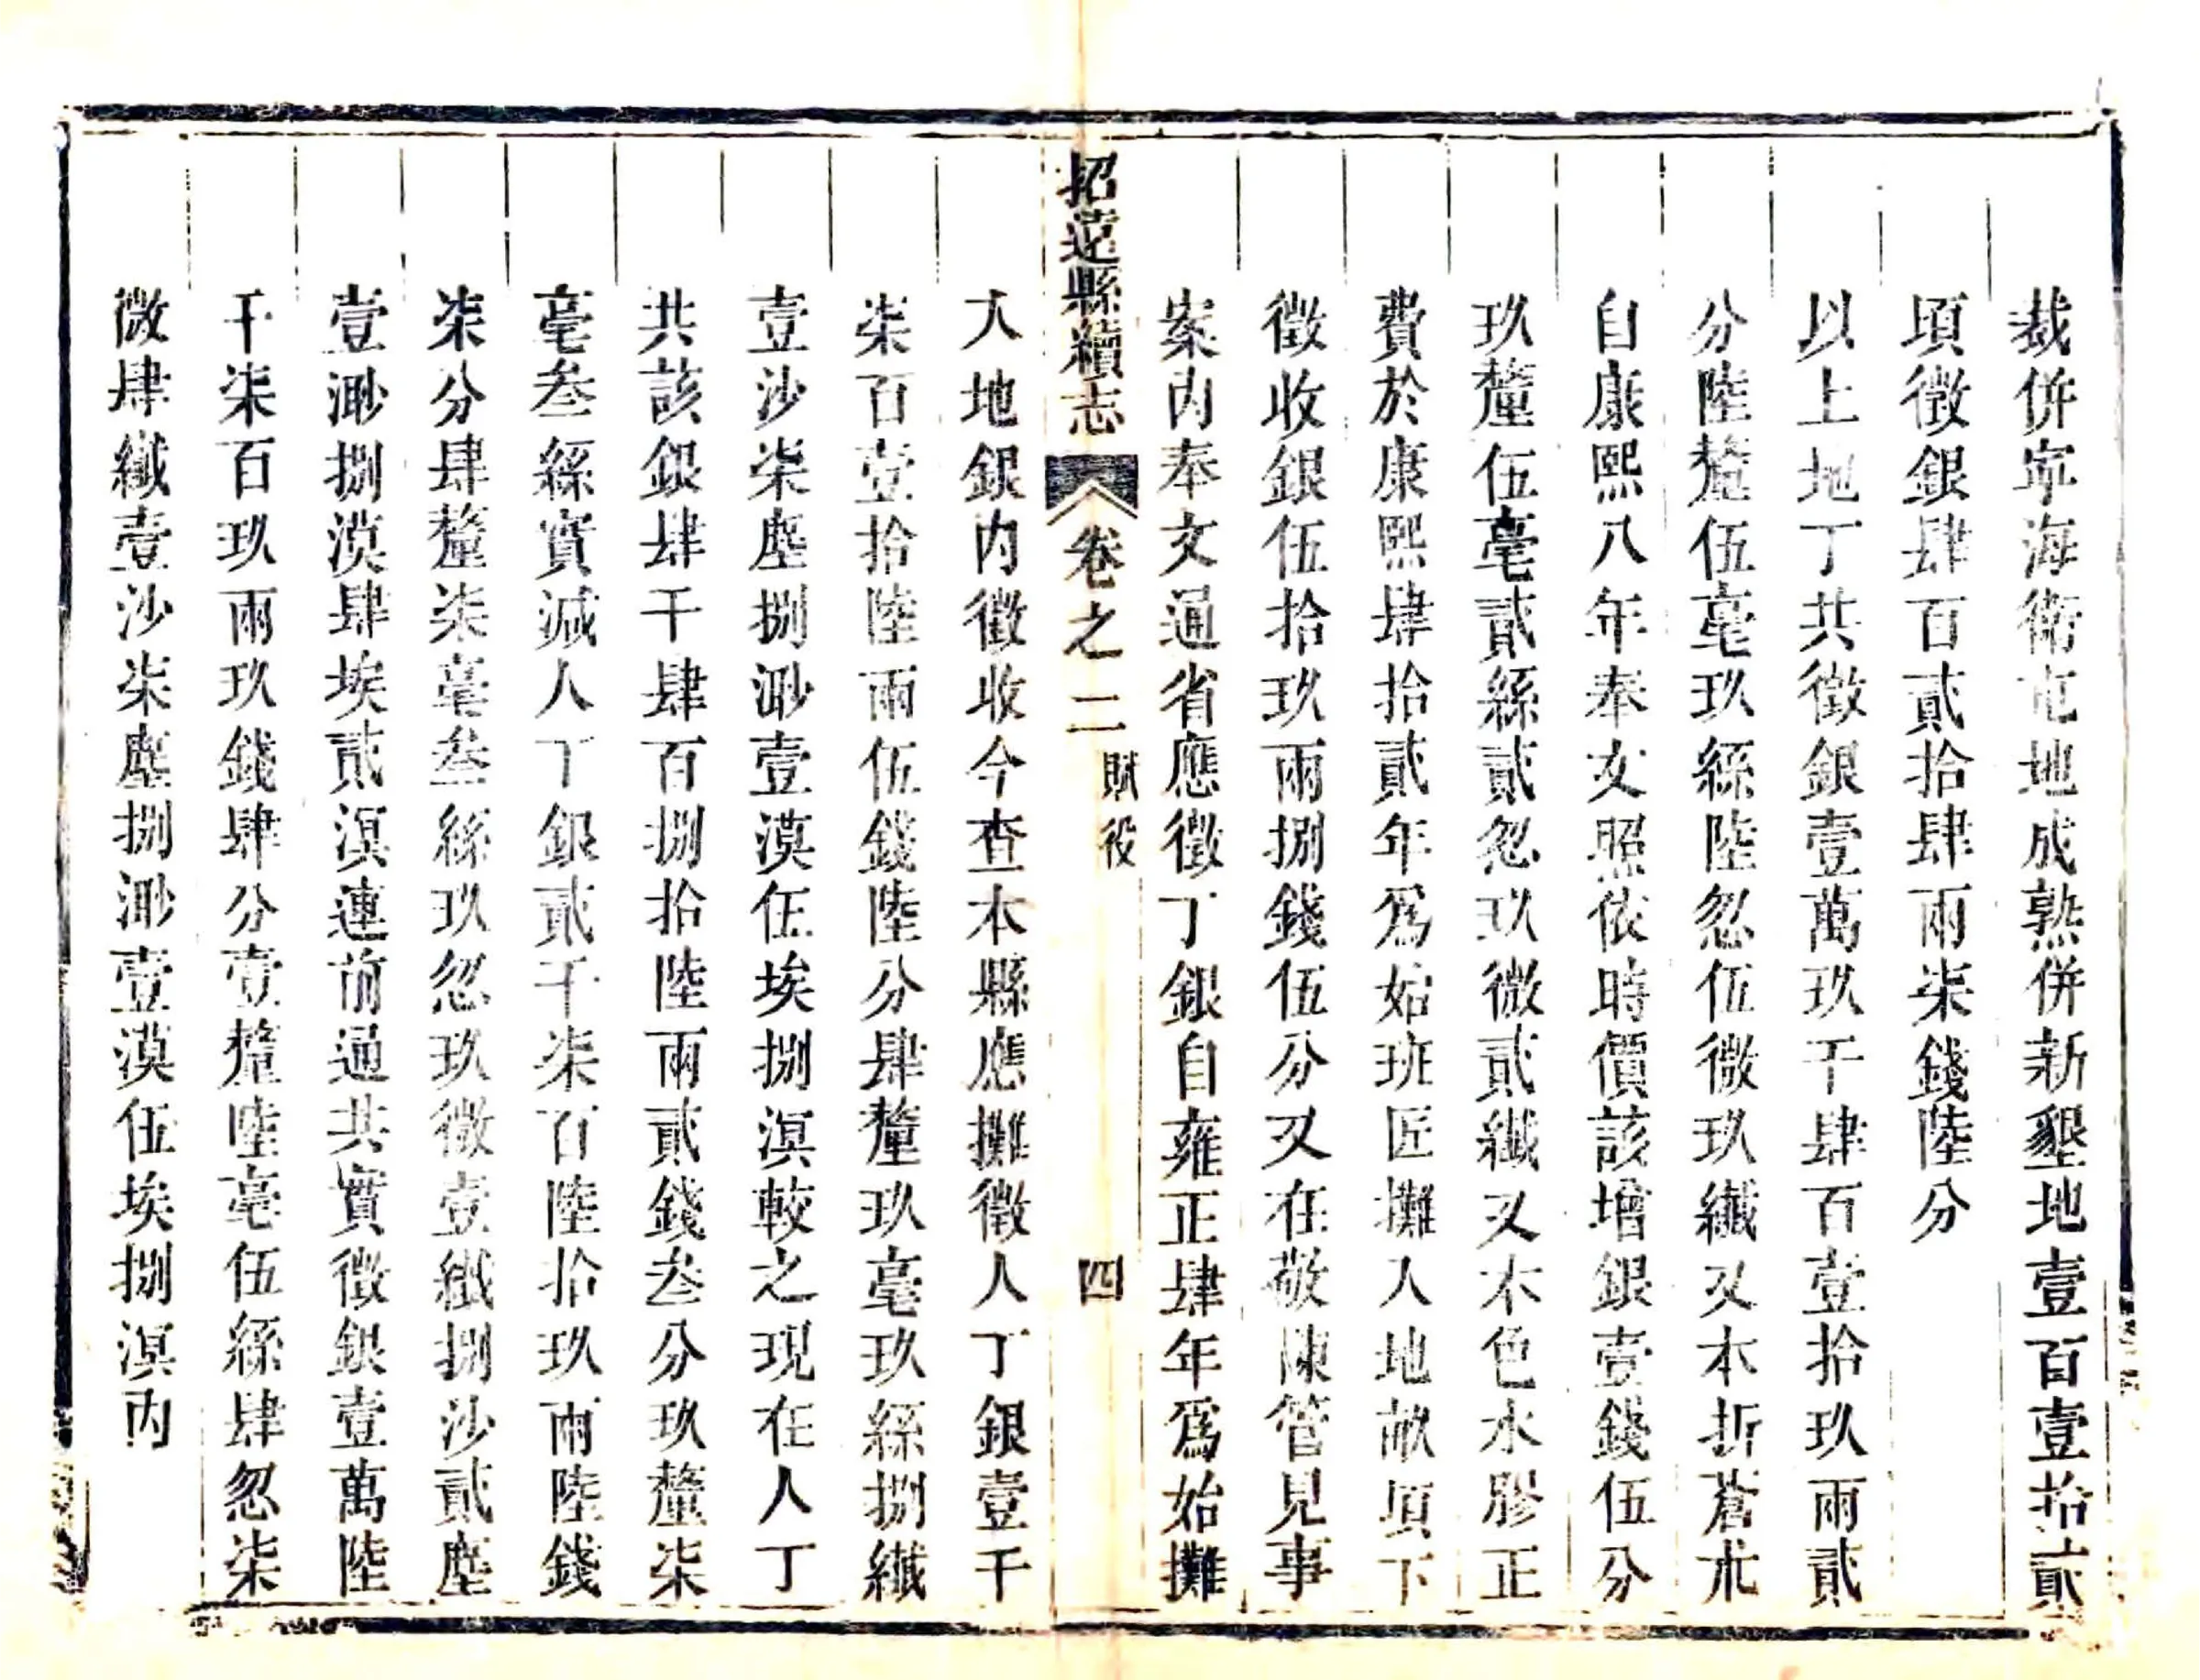 裁併寧海衛屯地成熟併新墾地壹百壹拾貳
頃徵銀肆百貳拾肆兩柒錢陸分
以上地丁共徵銀壹萬玖千肆百壹拾玖兩貳
分陸釐伍毫玖絲陸忽伍微玖纖又本折蒼朮
自康熙八年奉文照依時價該增銀壹錢伍分
玖釐伍毫貳絲貳忽玖微貳纖又本色水膠正
費於康熙肆拾貳年為始班匠攤入地畝項下
徵收銀伍拾玖兩捌錢伍分又在敬陳管見事
案內奉文通省應徵丁銀自雍正肆年為始攤
招遠縣續志 卷之二 賦役 四
入地銀內徵收今查本縣應攤徵人丁銀壹千
柒百壹拾陸兩伍錢陸分肆釐玖毫玖絲捌纖
壹沙柒塵捌渺壹漠伍埃捌溟較之現在人丁
共該銀肆千肆百捌拾陸兩貳錢叁分玖釐柒
毫叁絲實減人丁銀貳千柒百陸拾玖兩陸錢
柒分肆釐柒毫叁絲玖忽玖微壹纖捌沙貳塵
壹渺捌漠肆埃貳溟連前通共實徵銀壹萬陸
千柒百玖兩玖錢肆分壹釐陸毫伍絲肆忽柒
微肆纖壹沙柒塵捌渺壹漠伍埃捌溟內